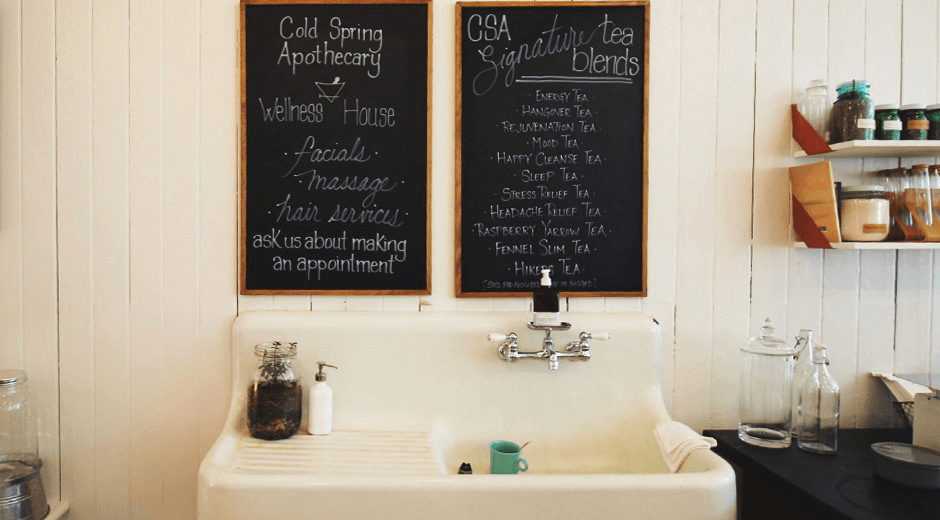 Cold Spring
Apothecary
Wellness House
· facials ·
· massage ·
· hair services ·
ask us about making
an appointment
CSA
Signature tea
blends
· Energy Tea ·
· Hangover Tea ·
· Rejuvenation Tea ·
· Mood Tea ·
· Happy Cleanse Tea ·
· Sleep Tea ·
· Stress Relief Tea ·
· Headache Relief Tea ·
· Raspberry Yarrow Tea ·
· Fennel Slim Tea ·
· Hikers Tea ·